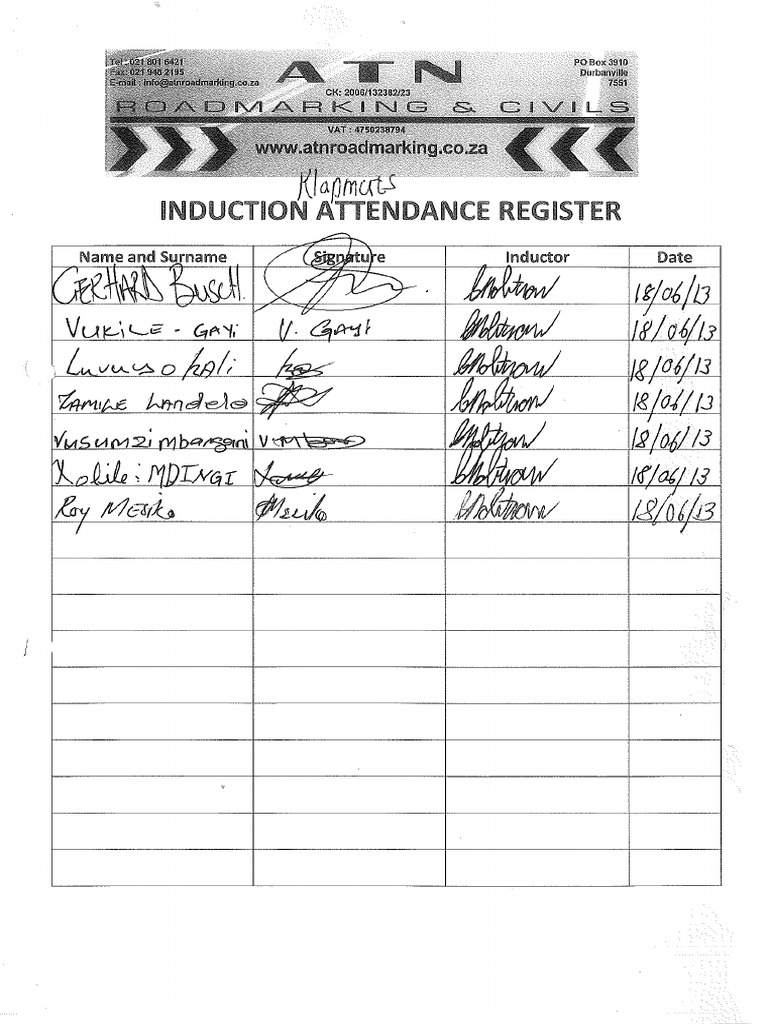 Tel : 021 801 6421
Fax: 021 948 2195
E-mail : info@atnroadmarking.co.za
ATN
CK: 2006/132382/23
PO Box 3910
Durbanville
7551
ROADMARKING & CIVILS
VAT : 4750238794
www.atnroadmarking.co.za
Klapmuts
INDUCTION ATTENDANCE REGISTER
Name and Surname Signature Inductor Date
GERHARD BUSCH. 18/06/13
VUKILE - GAYI V. GAYI 18/06/13
Luvuyo KALI 18/06/13
ZAMILE Wandelo 18/06/13
Vusumzi mbangani 18/06/13
Xolile: MDINGI 18/06/13
Roy MESIKO Mesiko 18/06/13